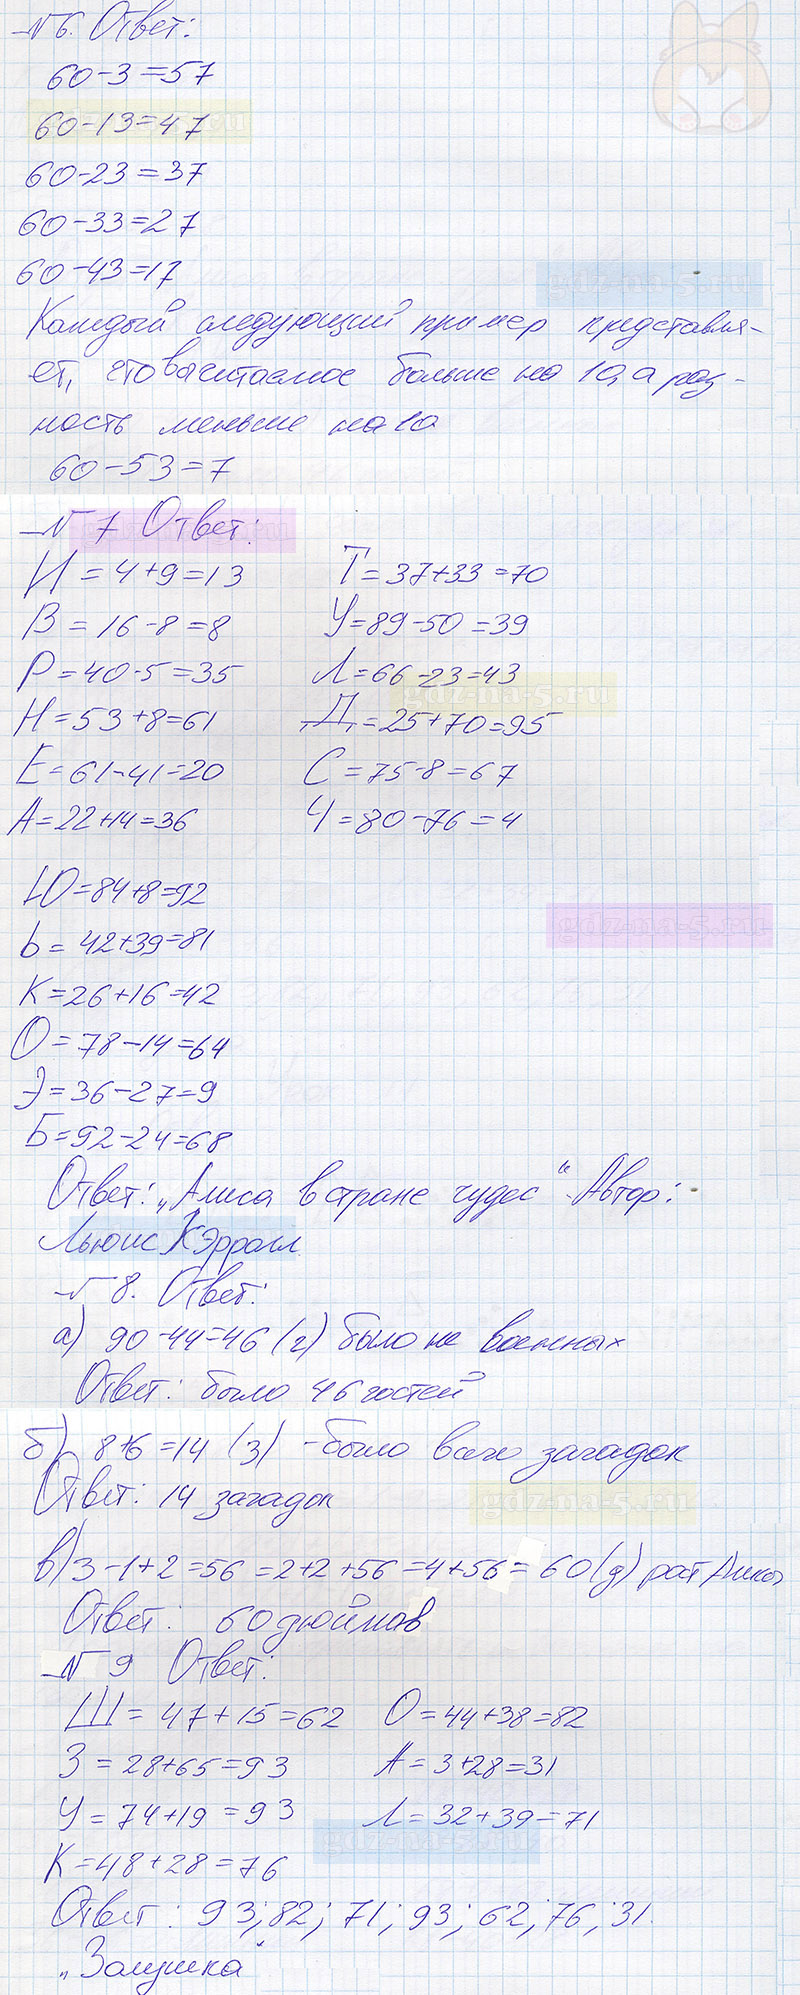 №6. Ответ:
60-3=57
60-13=47
60-23=37
60-33=27
gdz-na-5.ru
60-43=17
Каждый следующий пример представля-
ет, что вычитаемое больше на 10, а раз-
ность меньше на 10
60-53=7
№7 Ответ:
И=4+9=13 Т=37+33=70
В=16-8=8 У=89-50=39
Р=40-5=35 Л=66-23=43
gdz-na-5.ru
Н=53+8=61 Д=25+70=95
Е=61-41=20 С=75-8=67
А=22+14=36 Ч=80-76=4
Ю=84+8=92
gdz-na-5.ru
Ь=42+39=81
К=26+16=42
О=78-14=64
Э=36-27=9
Б=92-24=68
Ответ: „Алиса в стране чудес“. Автор:
Льюис Кэрролл
№8. Ответ:
а) 90-44=46 (г) было не военных
Ответ: было 46 гостей
б) 8+6=14 (з) - было всего загадок
Ответ: 14 загадок
gdz-na-5.ru
в) 3-1+2=56=2+2+56=4+56=60(д) рост Алисы
Ответ: 60 дюймов
№9 Ответ:
Ш=47+15=62 О=44+38=82
З=28+65=93 А=3+28=31
У=74+19=93 Л=32+39=71
gdz-na-5.ru
К=48+28=76
Ответ: 93; 82; 71; 93; 62; 76; 31.
„Золушка“